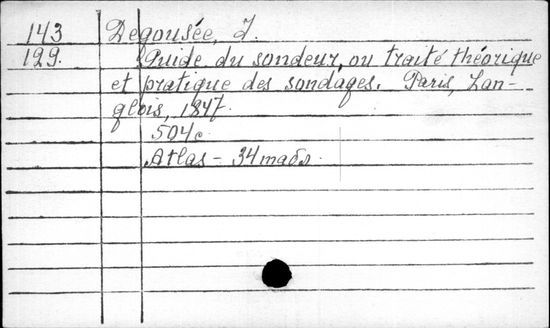 143 Degousée, J.
129. Guide du sondeur, ou traité théorique
et pratique des sondages. Paris, Lan-
glois, 1847.
504 с.
Atlas - 34 табл.